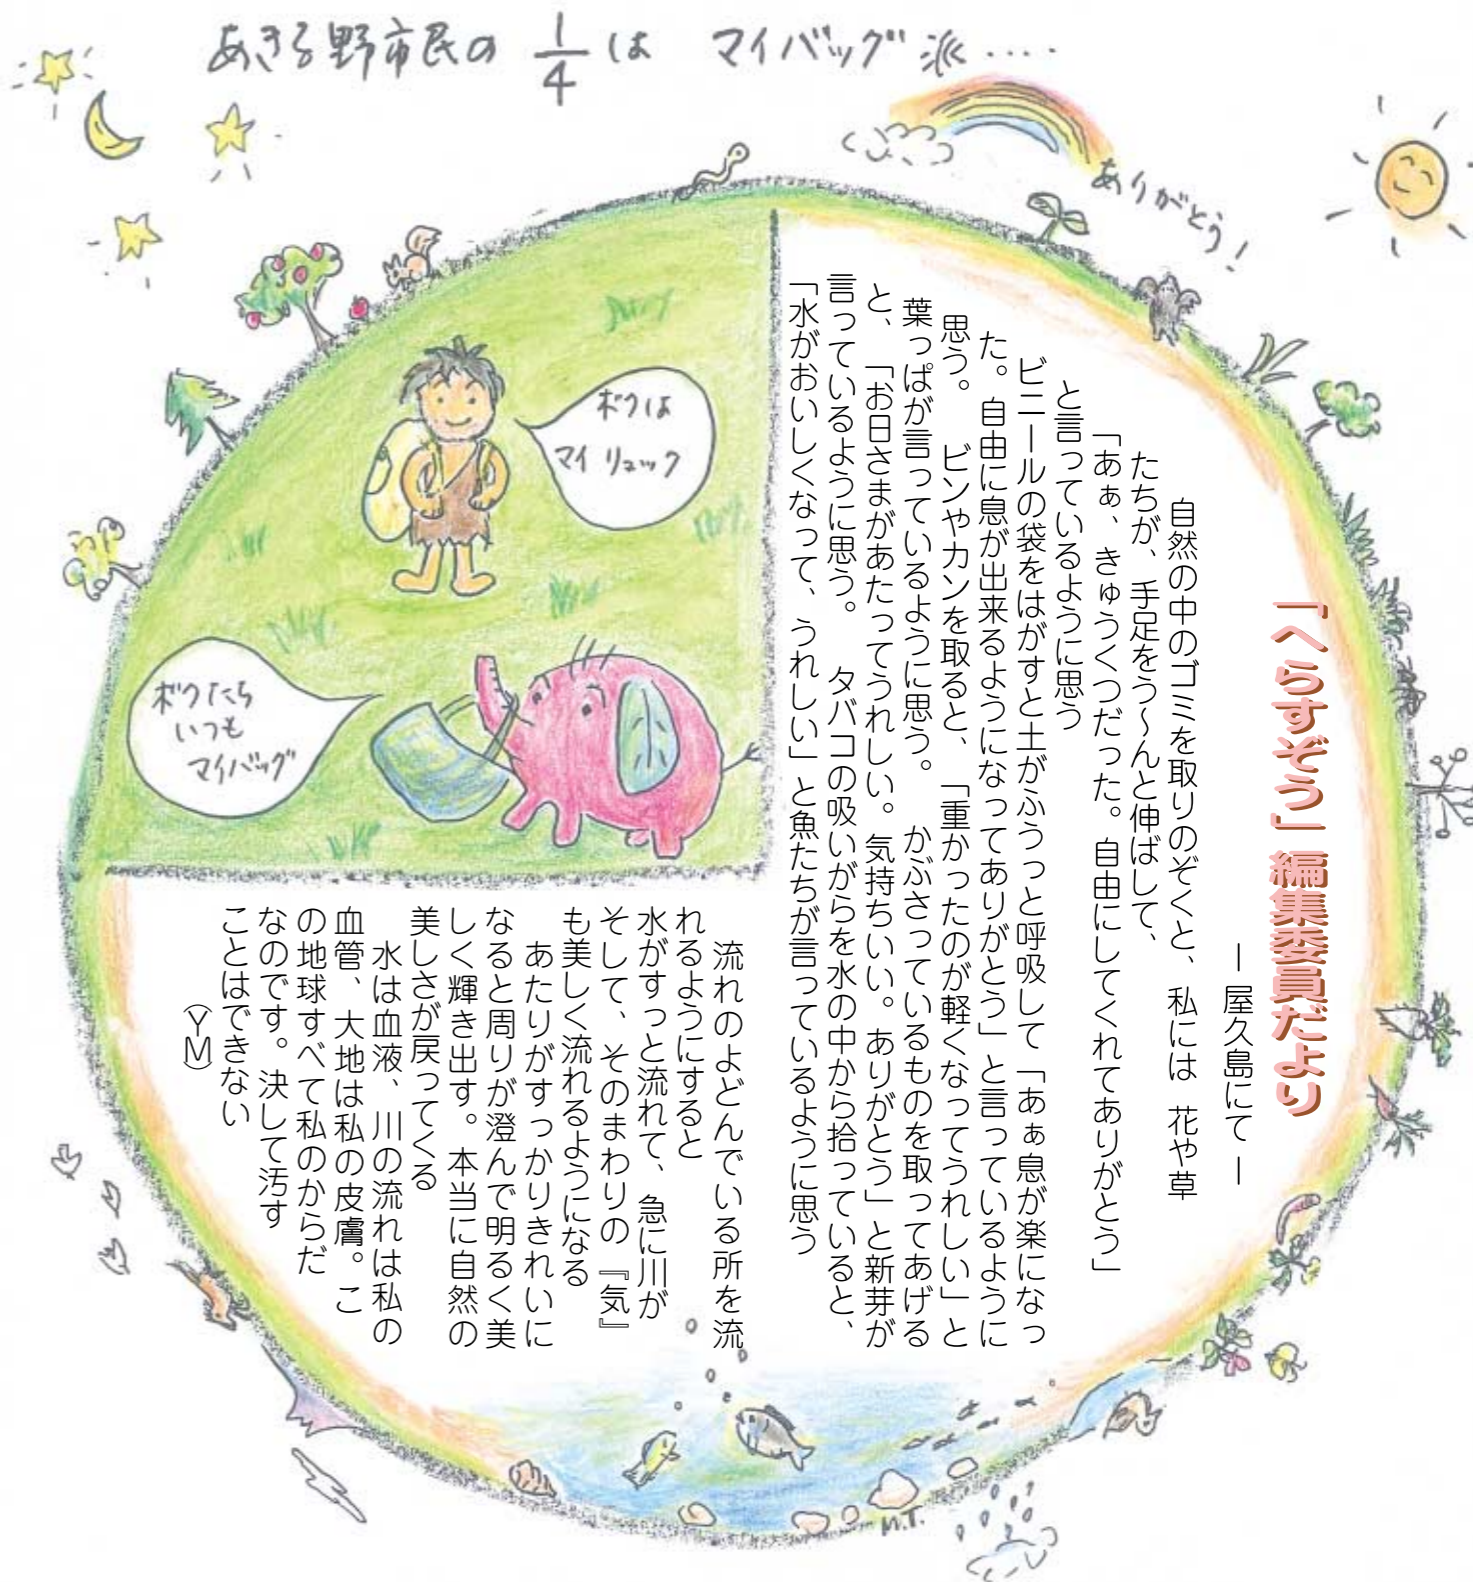 あきる野市民の 1/4 は マイバッグ派‥‥
ありがとう!
「へらすぞう」編集委員だより
ー 屋久島にて ー
自然の中のゴミを取りのぞくと、私には 花や草
たちが、手足をう～んと伸ばして、
「あぁ、きゅうくつだった。自由にしてくれてありがとう」
と言っているように思う
ビニールの袋をはがすと土がふうっと呼吸して「あぁ息が楽になっ
た。自由に息が出来るようになってありがとう」と言っているように
思う。 ビンやカンを取ると、「重かったのが軽くなってうれしい」と
葉っぱが言っているように思う。 かぶさっているものを取ってあげる
と、「お日さまがあたってうれしい。気持ちいい。ありがとう」と新芽が
言っているように思う。 タバコの吸いがらを水の中から拾っていると、
「水がおいしくなって、うれしい」と魚たちが言っているように思う
ボクは
マイ リュック
ボクたち
いつも
マイバッグ
流れのよどんでいる所を流
れるようにすると
水がすっと流れて、急に川が
そして、そのまわりの『気』
も美しく流れるようになる
あたりがすっかりきれいに
なると周りが澄んで明るく美
しく輝き出す。本当に自然の
美しさが戻ってくる
水は血液、川の流れは私の
血管、大地は私の皮膚。こ
の地球すべて私のからだ
なのです。決して汚す
ことはできない
(YM)
M.T.